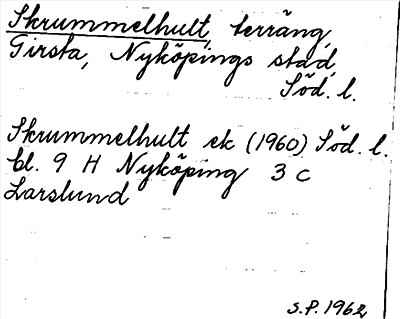 Skrummelhult, terräng,
Girsta, Nyköpings stad,
Söd. l.
Skrummelhult ek (1960) Söd. l.
bl. 9 H Nyköping 3 c
Larslund
S.P. 1962